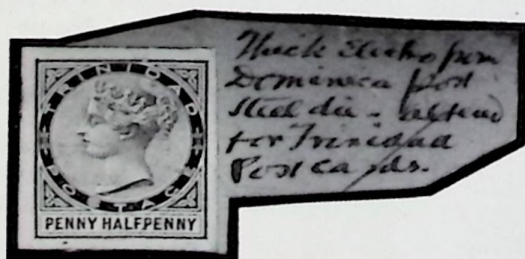 TRINIDAD
POSTAGE
PENNY HALFPENNY
Thick from
Dominica post
Steel die - altered
for Trinidad
Post cards.